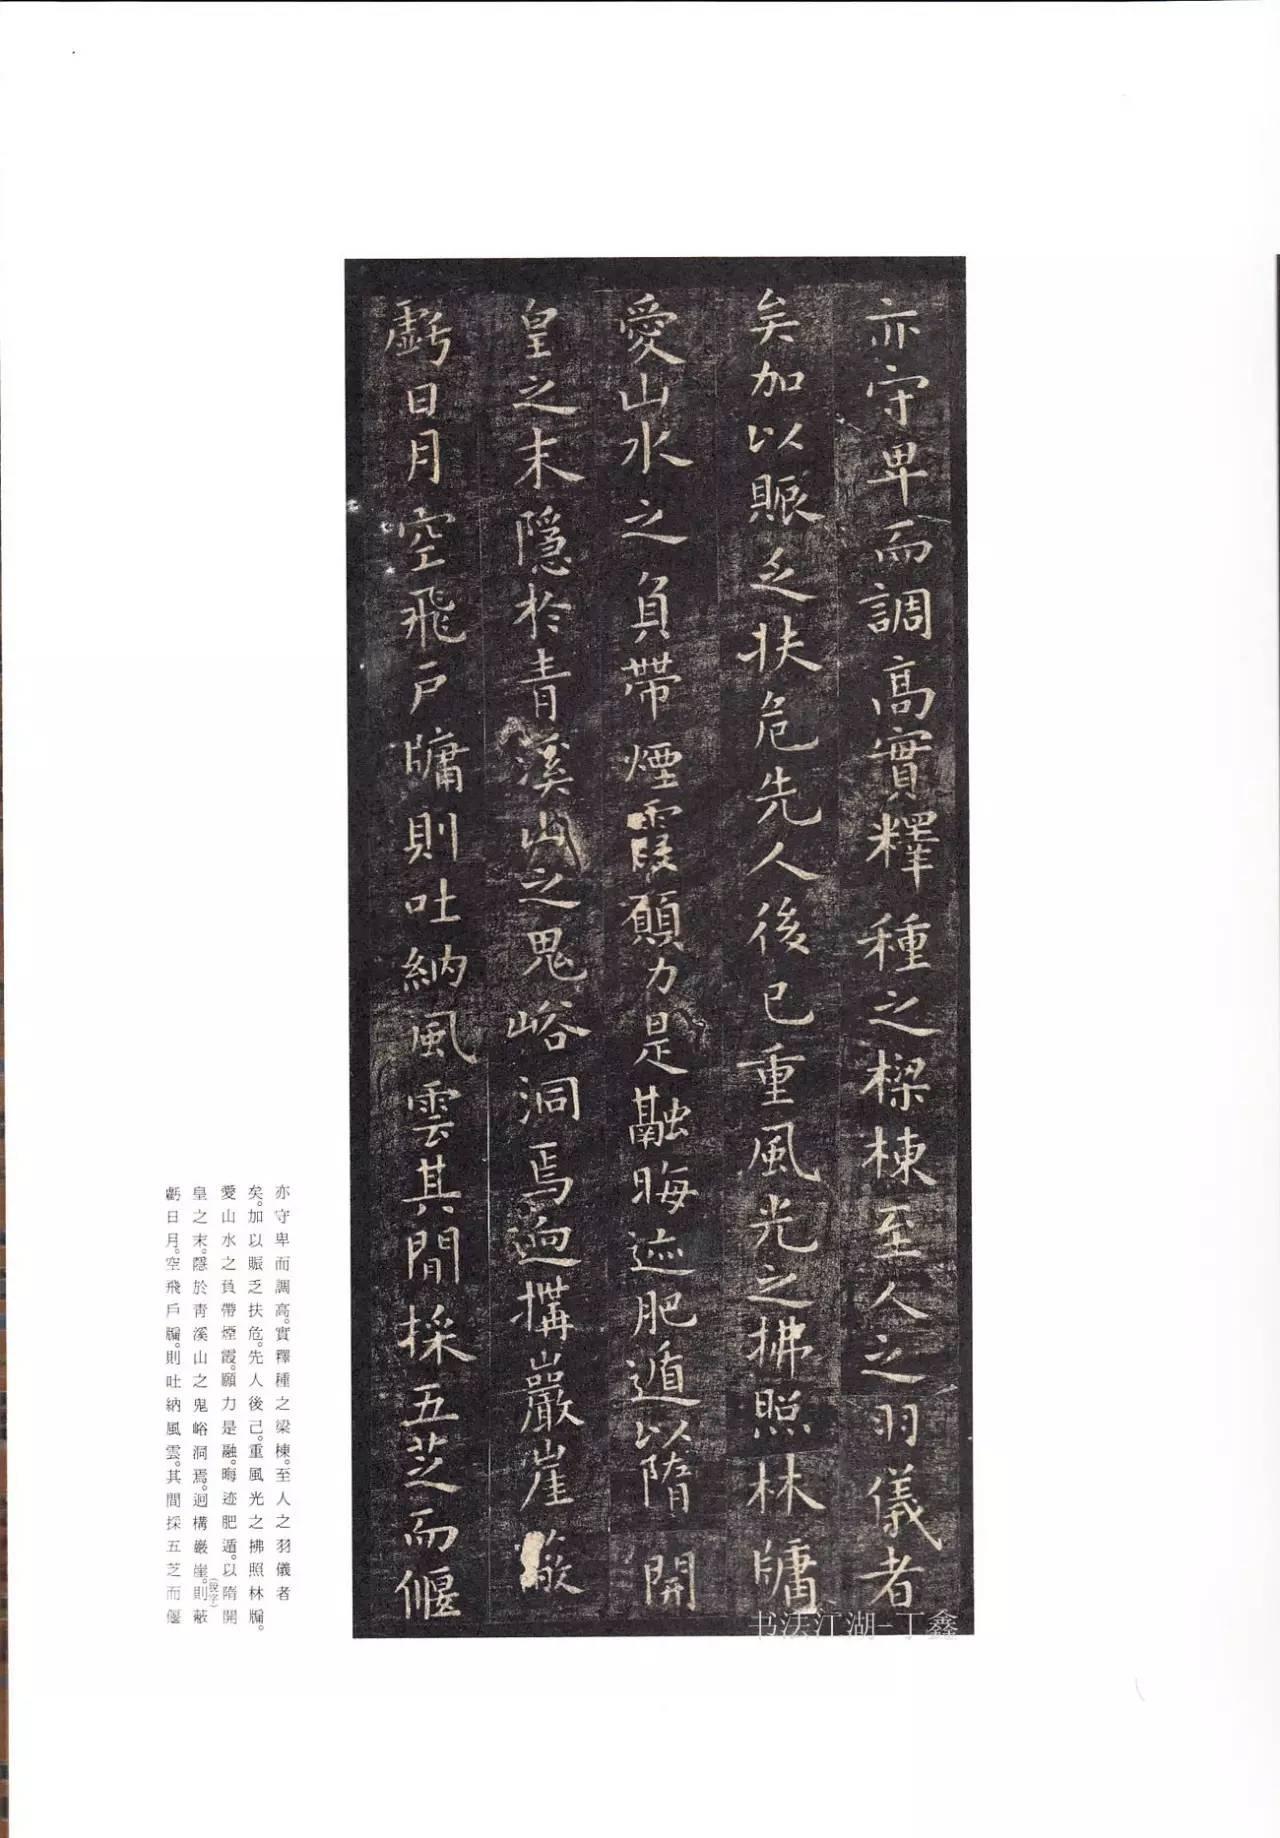 亦守卑而調高實釋種之樑棟至人之羽儀者
矣加以賑乏扶危先人後已重風光之拂照林牗
愛山水之負帶煙霞願力是融晦迹肥遁以隋開
皇之末隱於青溪山之鬼峪洞焉迥構巖崖蔽
虧日月空飛戶牗則吐納風雲其間採五芝而偃
书法江湖-丁鑫
亦守卑而調高。實釋種之梁棟。至人之羽儀者
矣。加以賑乏扶危。先人後己。重風光之拂照林牖。
愛山水之負帶煙霞。願力是融。晦迹肥遁。以隋開
皇之末。隱於青溪山之鬼峪洞焉。迥構巖崖。則(脫字)蔽
虧日月。空飛戶牖。則吐納風雲。其間採五芝而偃